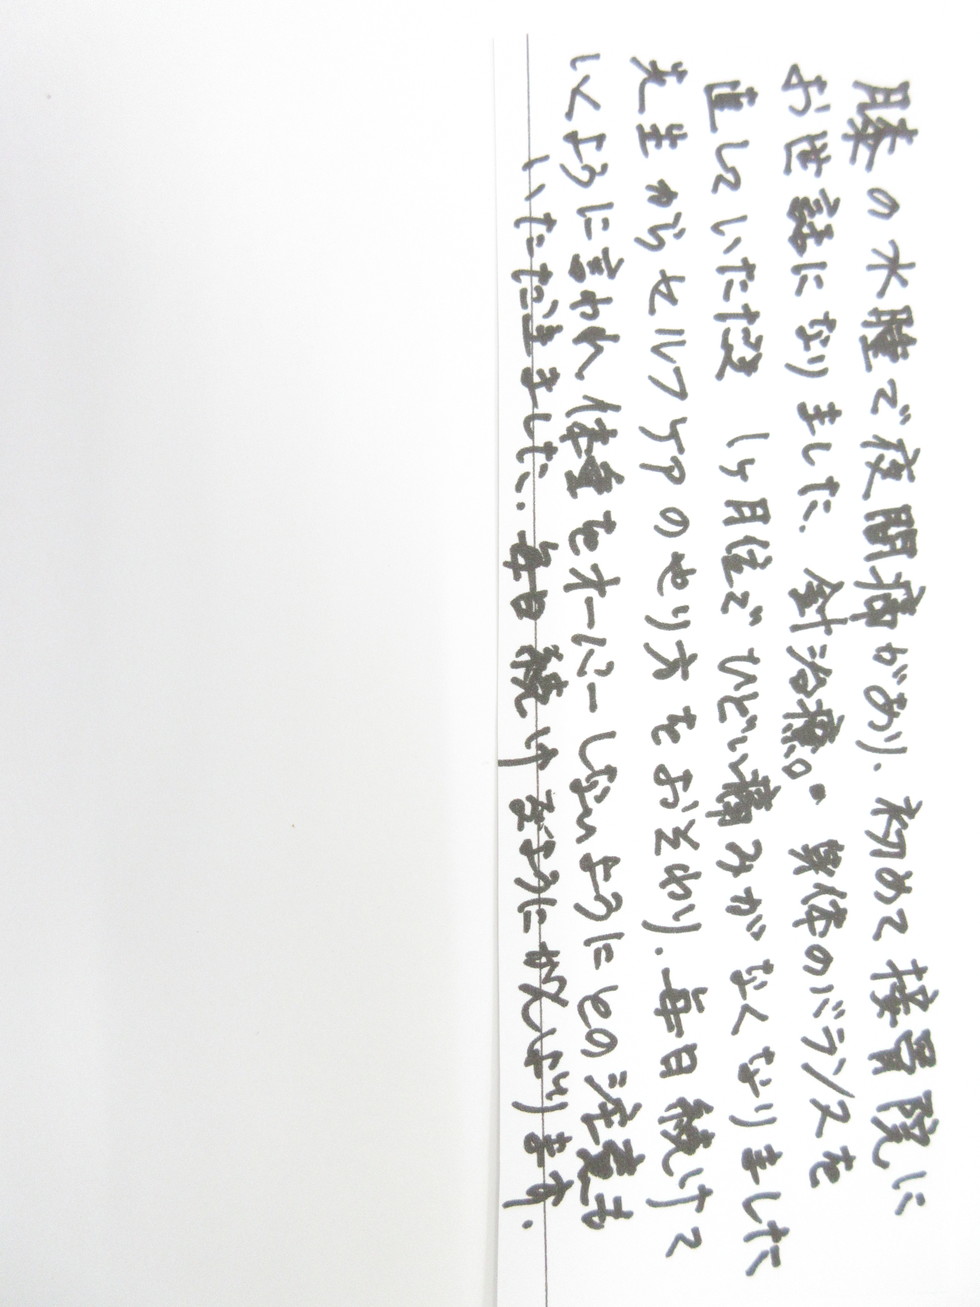 膝の水腫で夜間痛があり、初めて接骨院に
お世話になりました。針治療。身体のバランスを
直していただき 1ヶ月位でひどい痛みがなくなりました
先生からセルフケアのやり方をおそわり、毎日続けて
いくように言われ、体重をオーバーしないようにとの注意も
いただきました。毎日続けるようにがんばります。